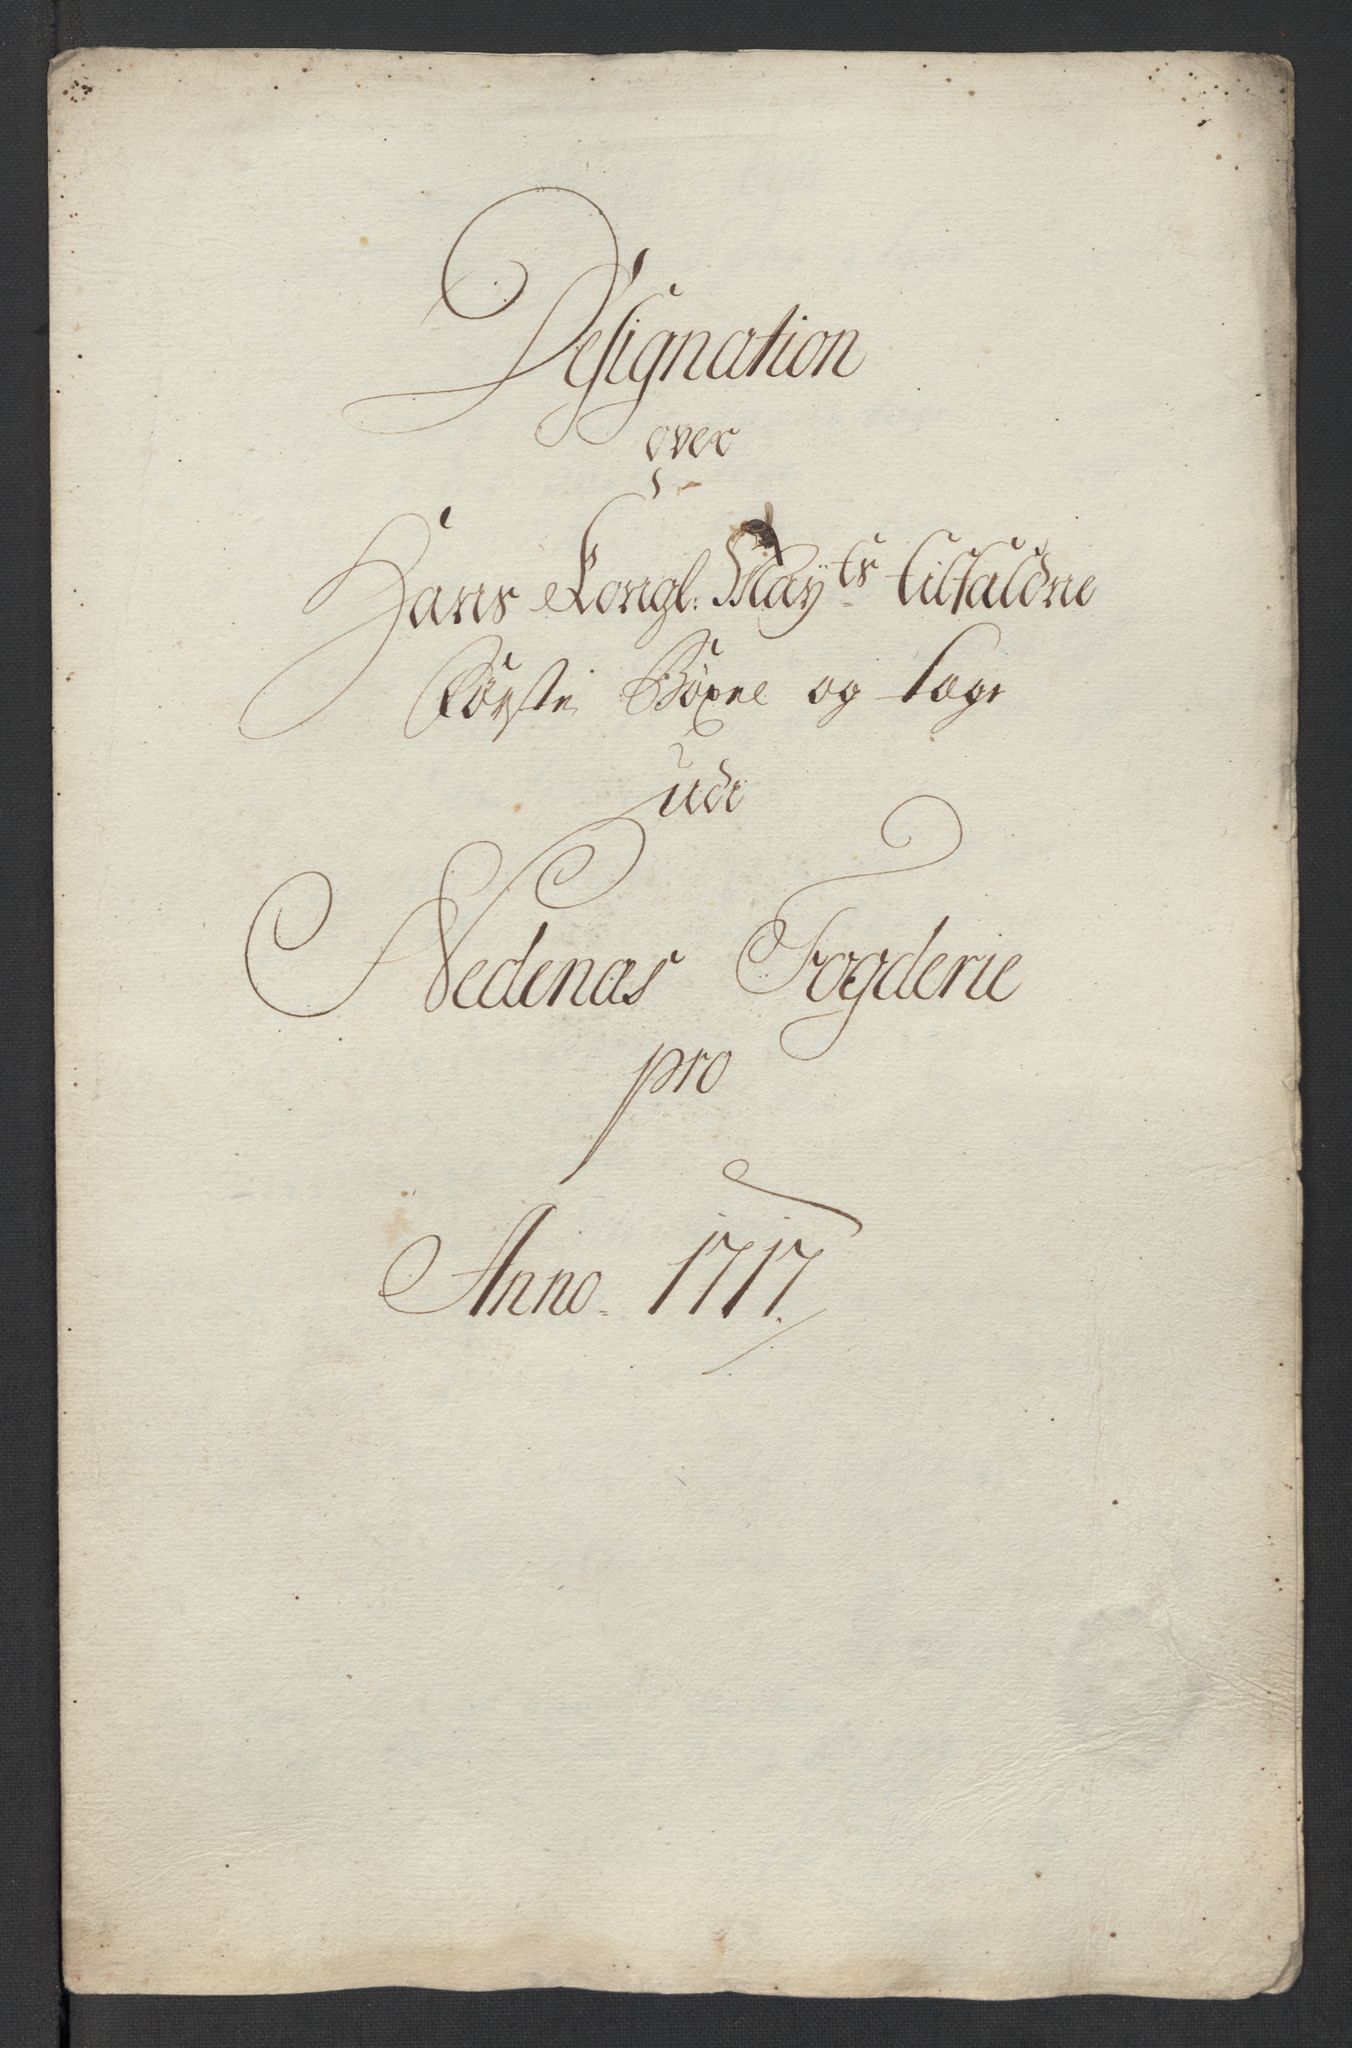 Designation
over
Hans Kongl: Mayts tilfaldne
Første Bøxel og tage
udi
Nedenas Fogderie
pro
Anno 1717.